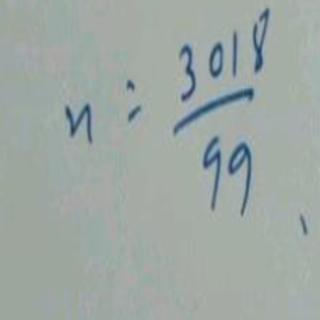 n = 3018/99